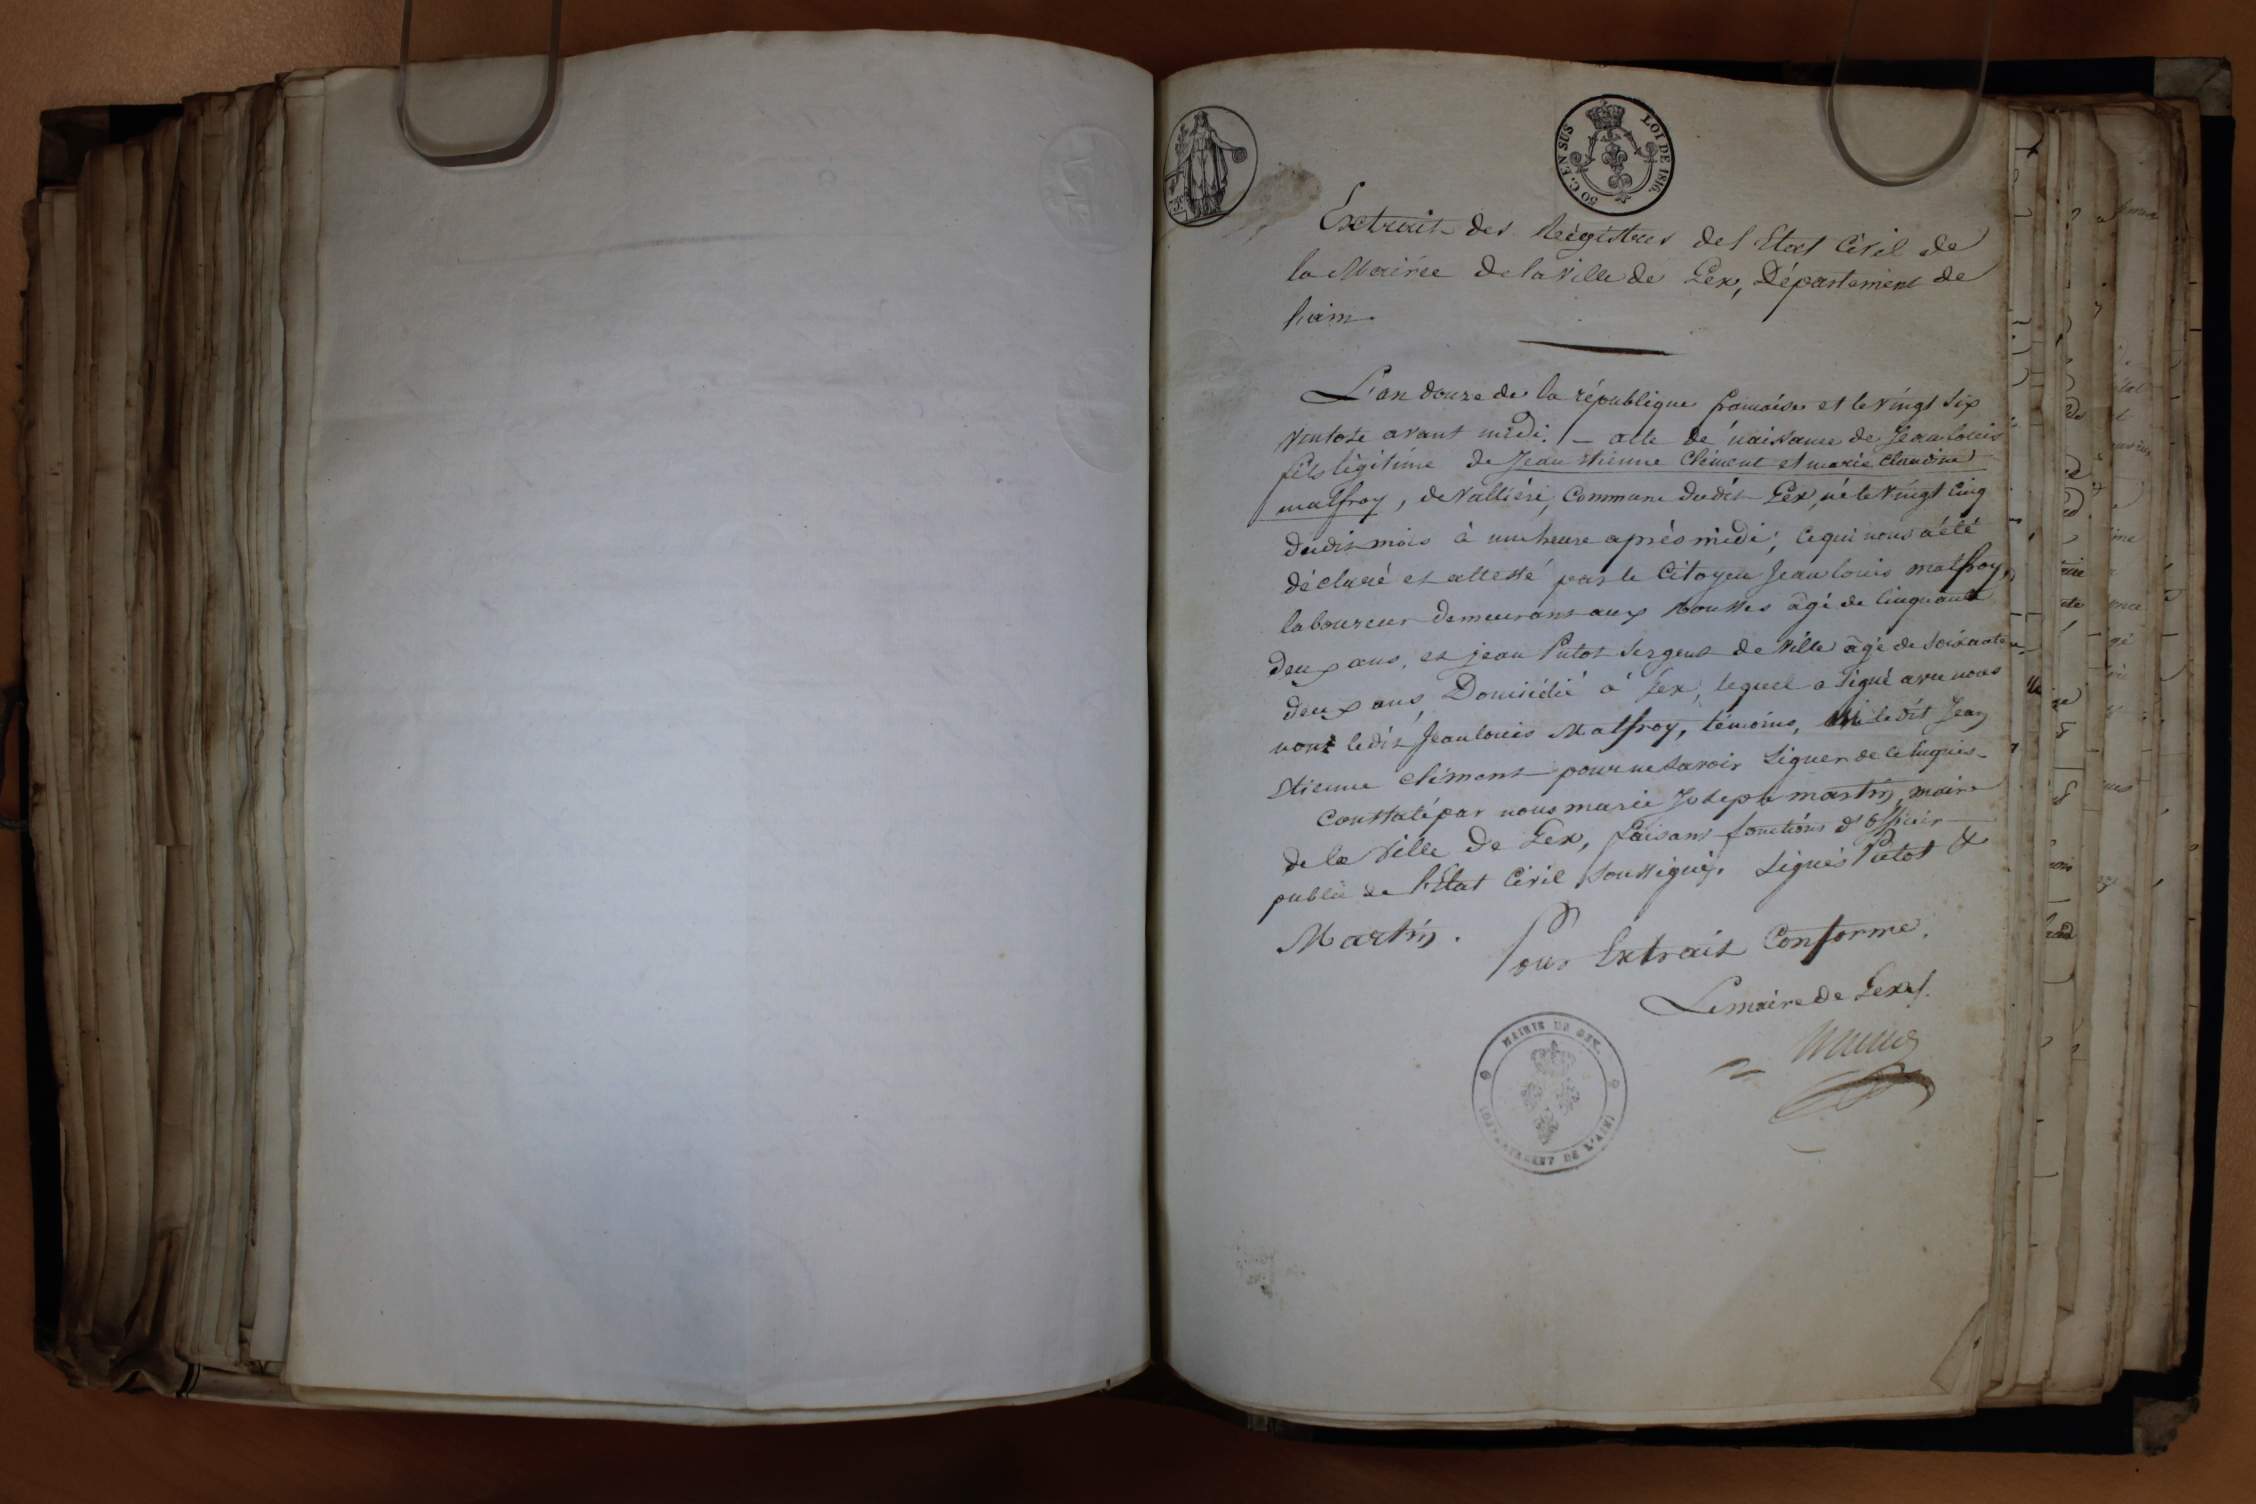 50 C. EN SUS
LOI DE 1816.
Extrait des Régistres de l'Etat Civil de
la Mairie de la Ville de Gex, Département de
l'ain.
L'an douze de la république francaise et le vingt six
Ventose avant midi. - acte de naissance de Jean louis
fils légitime de Jean Etienne Clément et marie claudine
malfroy, de Vallière, Commune dudit Gex, né le vingt Cinq
dudit mois à une heure après midi; ce qui nous a été
déclaré et attesté par le Citoyen Jean louis malfroy,
laboureur demeurant aux Rousses âgé de Cinquante
deux ans, et jean Putot Sergent de Ville âgé de soixante
deux ans, Domicilié à Gex, lequel a signé avec nous
non ledit Jean louis Malfroy, témoins, ni ledit Jean
Etienne Clément pour ne savoir signer de ce Enquis-
Constaté par nous marie Joseph martin, maire
de la Ville de Gex, faisant fonctions d'officier
public de l'Etat Civil soussigné. Signés Putot &
Martin.
Pour Extrait Conforme.
Le maire de Gex
MAIRIE DE GEX.
(DÉPARTEMENT DE L'AIN)